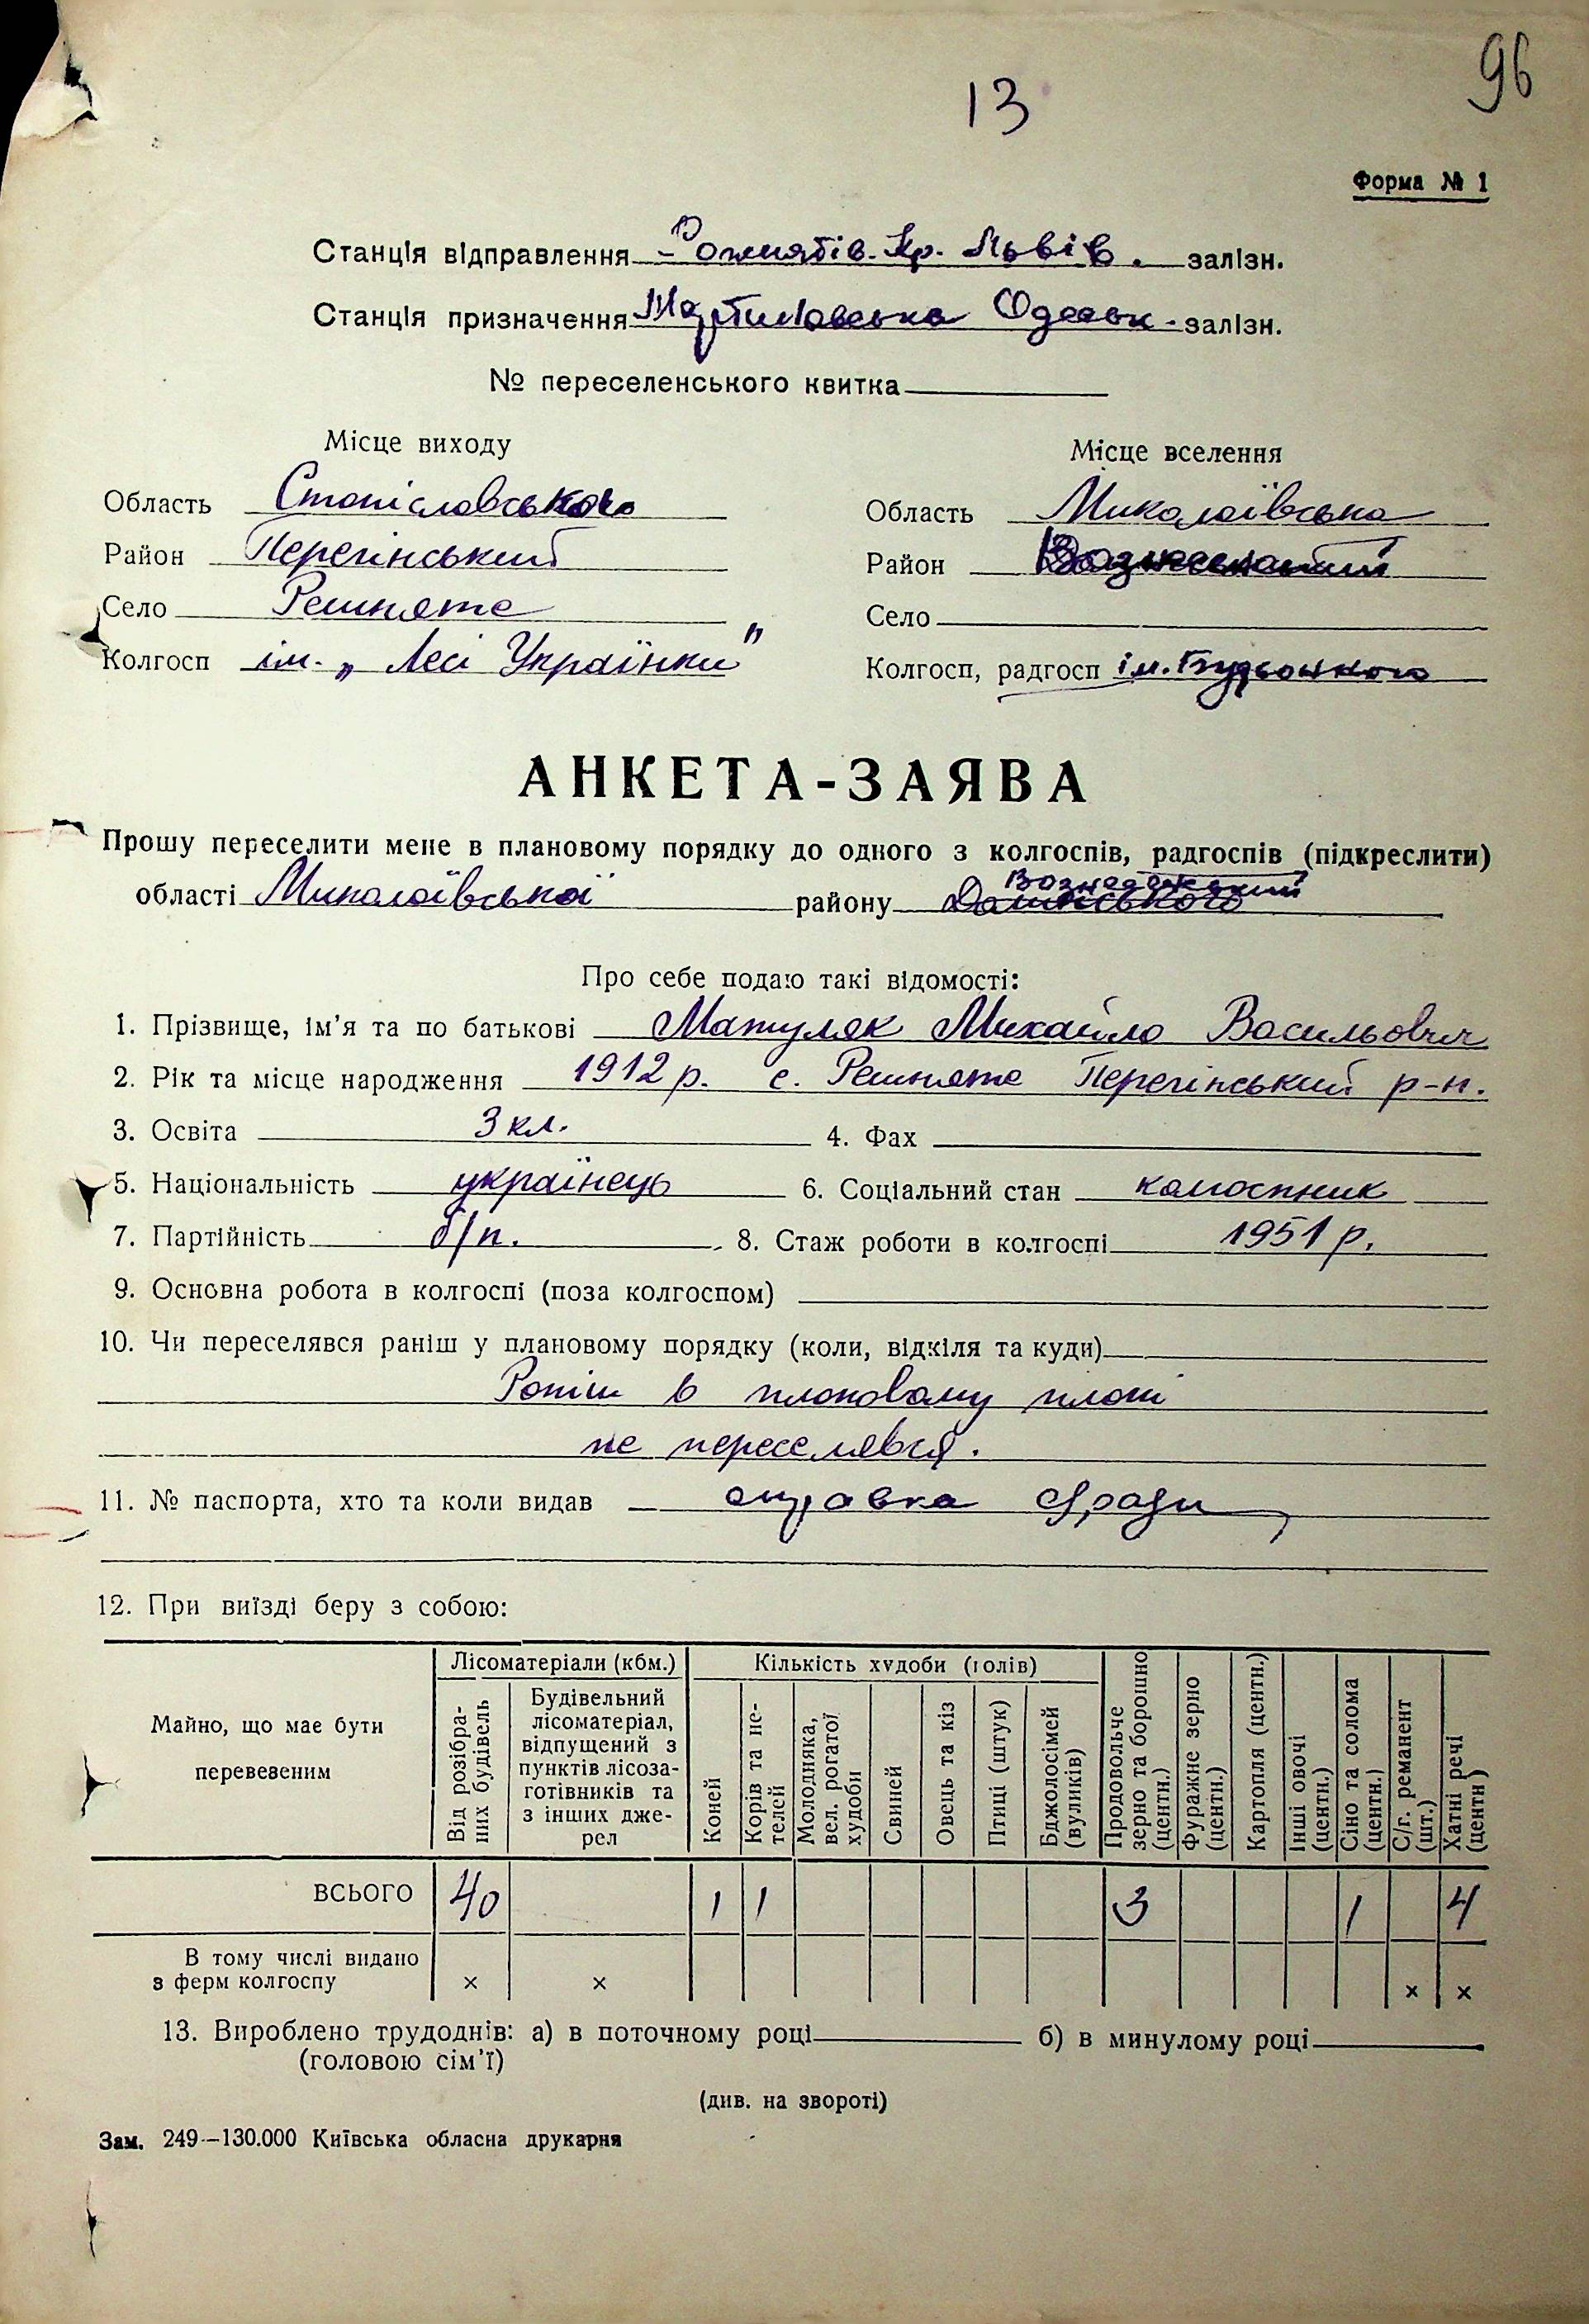 96
13
Форма № 1
Станція відправлення Рожнятів-Кр. Львів. залізн.
Станція призначення Мартинівська Одеськ. залізн.
№ переселенського квитка
Місце виходу
Місце вселення
Область Станіславського
Область Миколаївська
Район Перегінський
Район Вознесенський
Село Решнята
Село
Колгосп ім. „Лесі Українки"
Колгосп, радгосп ім. Будьонного
АНКЕТА-ЗАЯВА
Прошу переселити мене в плановому порядку до одного з колгоспів, радгоспів (підкреслити)
Вознесенський
області Миколаївської району
Про себе подаю такі відомості:
1. Прізвище, ім'я та по батькові Матуляк Михайло Васильович
2. Рік та місце народження 1912 р. с. Решнята Перегінський р-н.
3. Освіта 3 кл. 4. Фах
5. Національність українець 6. Соціальний стан колгоспник
7. Партійність б/п. 8. Стаж роботи в колгоспі 1951 р.
9. Основна робота в колгоспі (поза колгоспом)
10. Чи переселявся раніш у плановому порядку (коли, відкіля та куди)
Раніш в плановому плані
не переселявся.
11. № паспорта, хто та коли видав справка с/ради
12. При виїзді беру з собою:
Майно, що має бути перевезеним
Лісоматеріали (кбм.)
Кількість худоби (голів)
Від розібраних будівель
Будівельний лісоматеріал, відпущений з пунктів лісозаготівників та з інших джерел
Коней
Корів та нетелей
Молодняка, вел. рогатої худоби
Свиней
Овець та кіз
Птиці (штук)
Бджолосімей (вуликів)
Продовольче зерно та борошно (центн.)
Фуражне зерно (центн.)
Картопля (центн.)
Інші овочі (центн.)
Сіно та солома (центн.)
С/г. реманент (шт.)
Хатні речі (центн)
ВСЬОГО 40 1 1 3 1 4
В тому числі видано
з ферм колгоспу × × × ×
13. Вироблено трудоднів: а) в поточному році б) в минулому році
(головою сім'ї)
(див. на звороті)
Зам. 249—130.000 Київська обласна друкарня